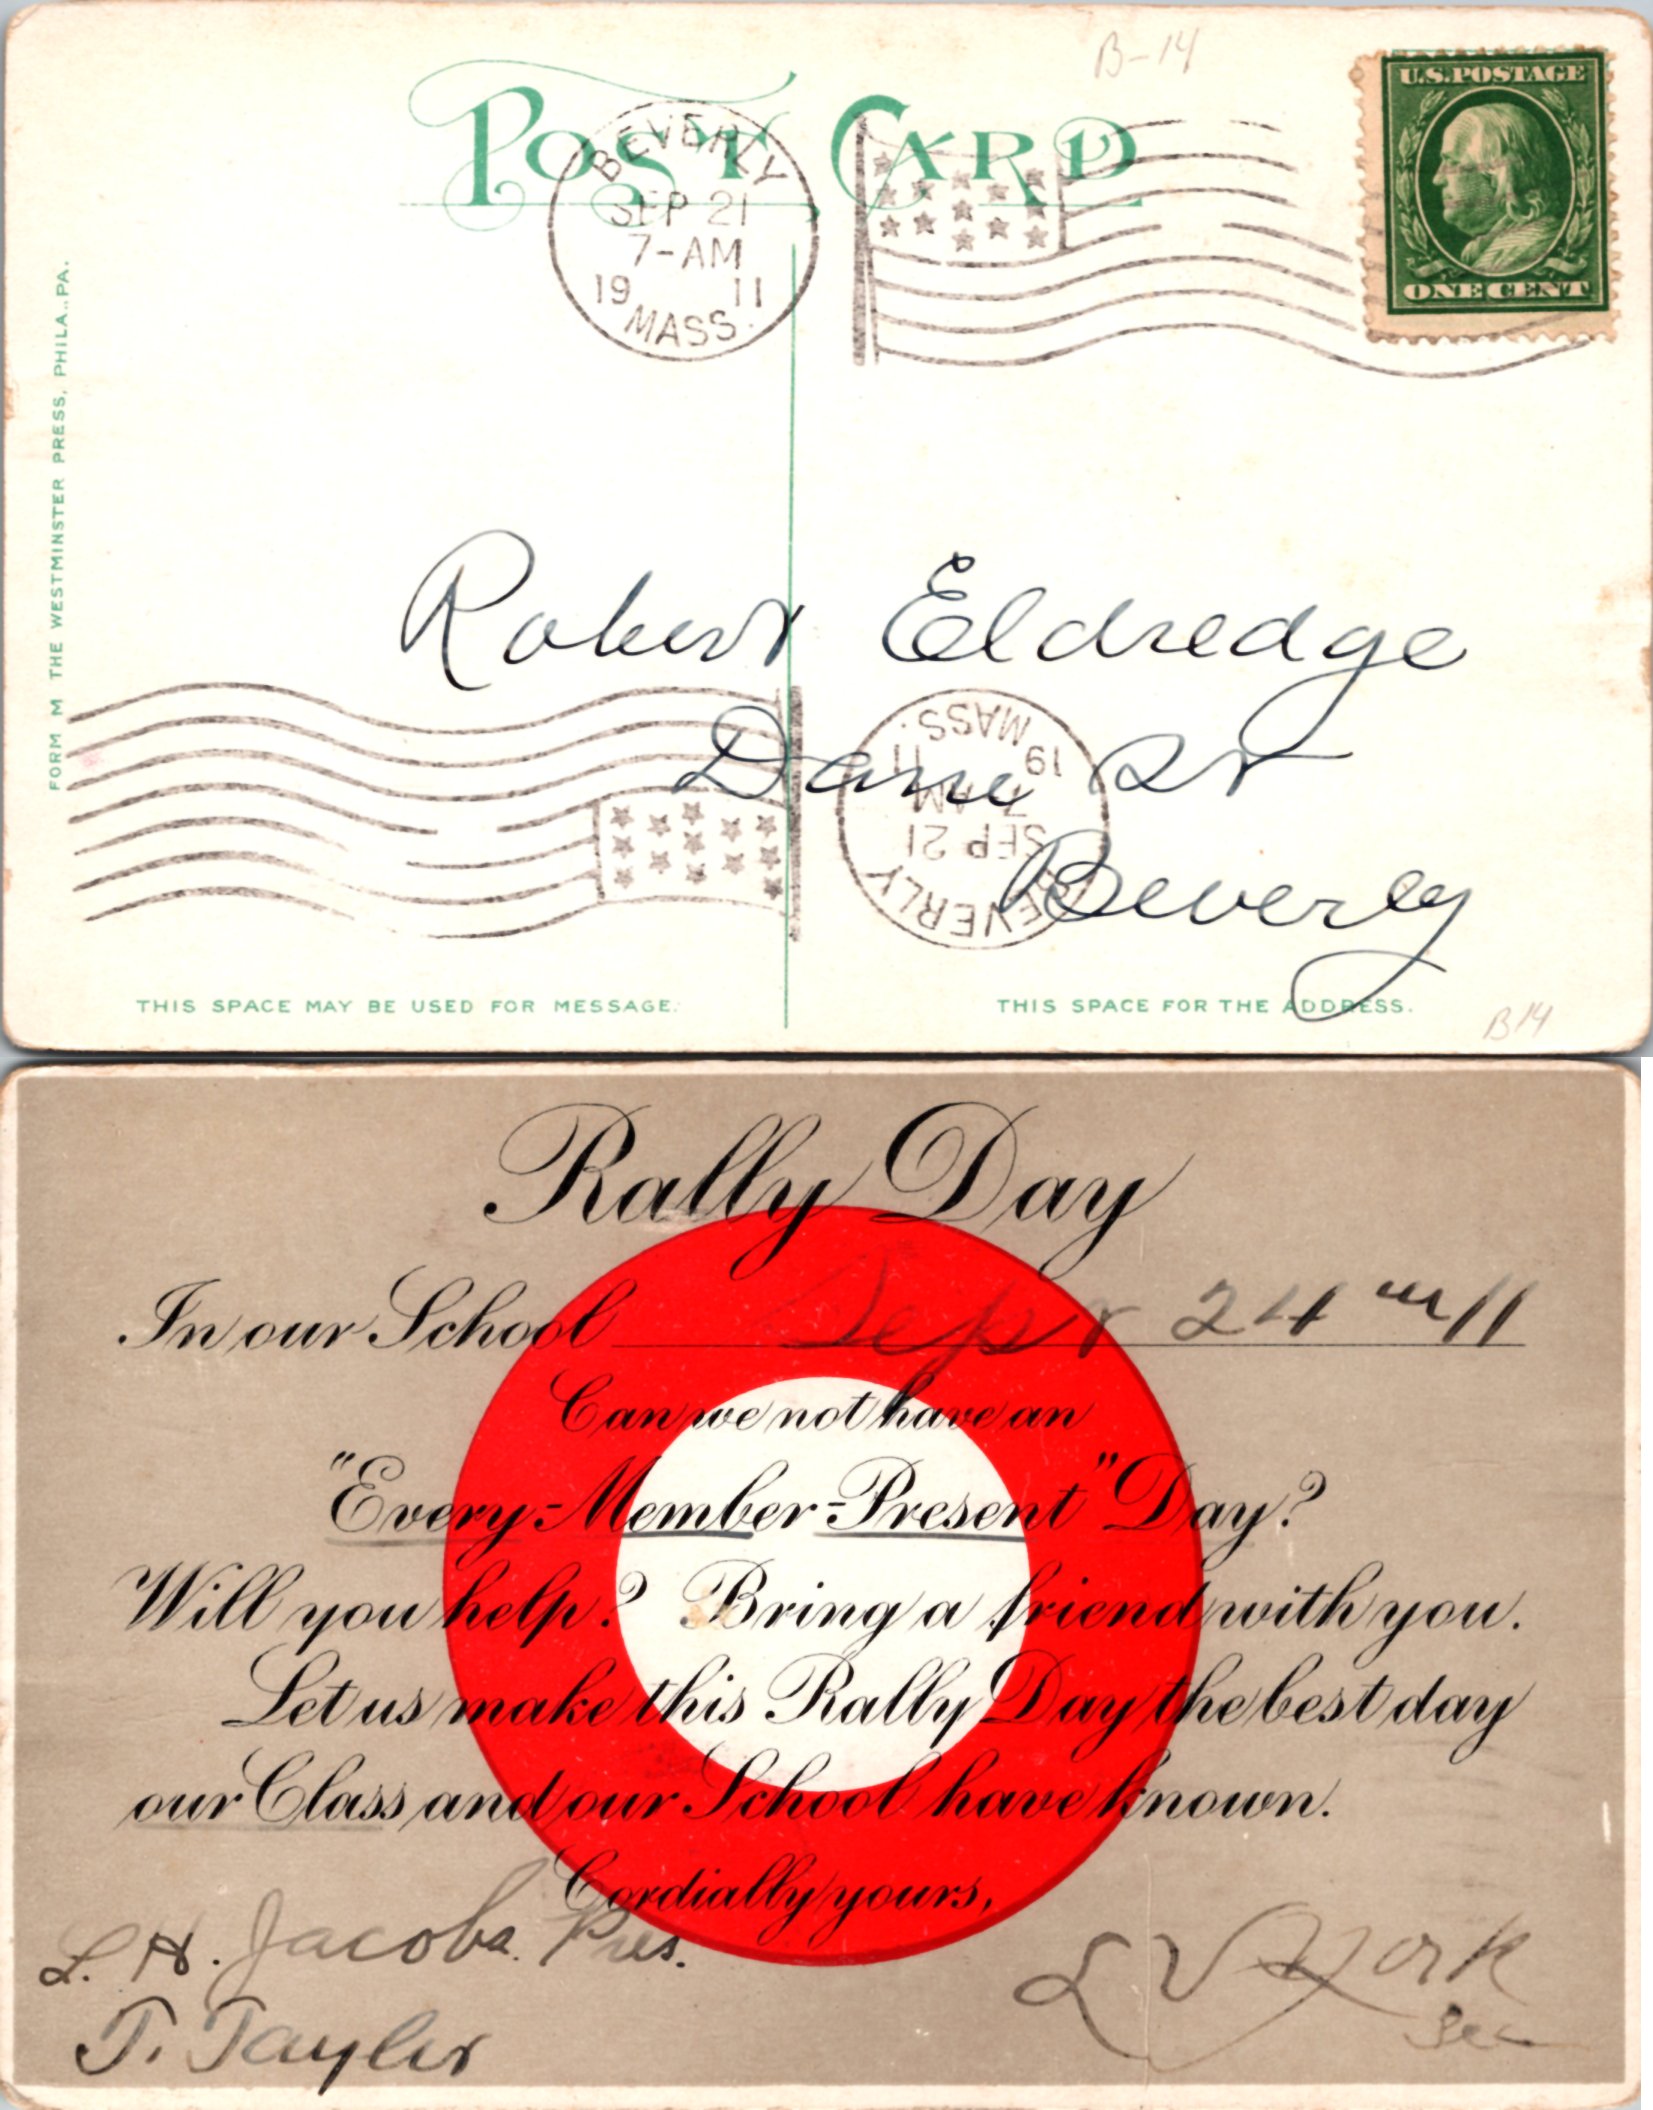 B-14
POST CARD
U.S. POSTAGE
ONE CENT
BEVERLY
SEP 21
7-AM
19 11
MASS.
FORM M THE WESTMINSTER PRESS, PHILA., PA.
Robert Eldredge
Dane St
Beverly
BEVERLY
SEP 21
7 AM
19 11
MASS.
THIS SPACE MAY BE USED FOR MESSAGE.
THIS SPACE FOR THE ADDRESS.
B14
Rally Day
In our School Sept 24 th 11
Can we not have an
"Every-Member-Present" Day?
Will you help? Bring a friend with you.
Let us make this Rally Day the best day
our Class and our School have known.
Cordially yours,
L. H. Jacobs. Pres.
T. Tayler
L V York
Sec